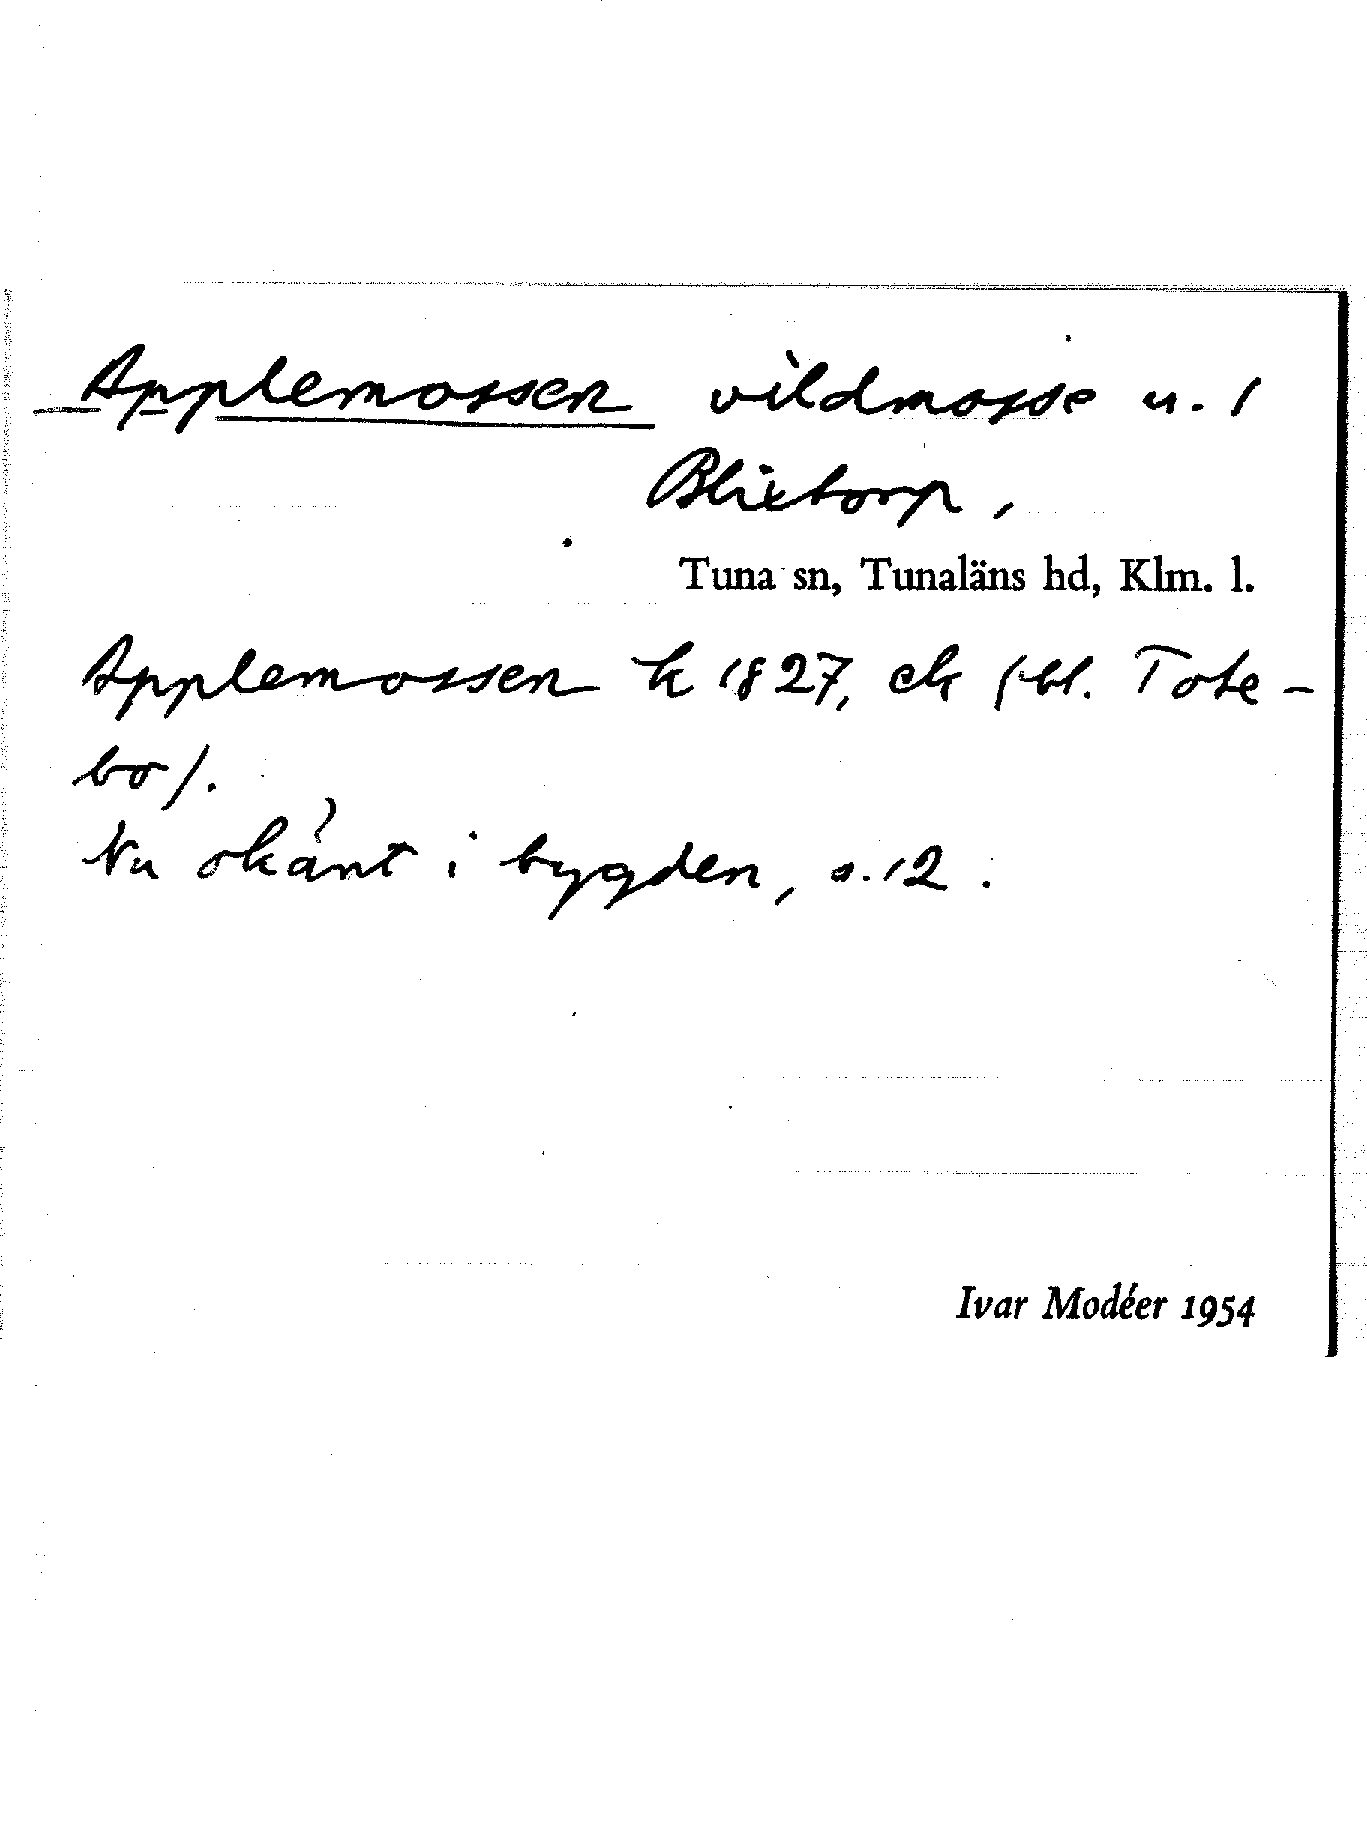 Applemossen vildmosse u. 1
Blixtorp,
Tuna sn, Tunaläns hd, Klm. l.
Applemossen k 1827, ek (bl. Tote-
bo).
Nu okänt i bygden, s. 12.
Ivar Modéer 1954